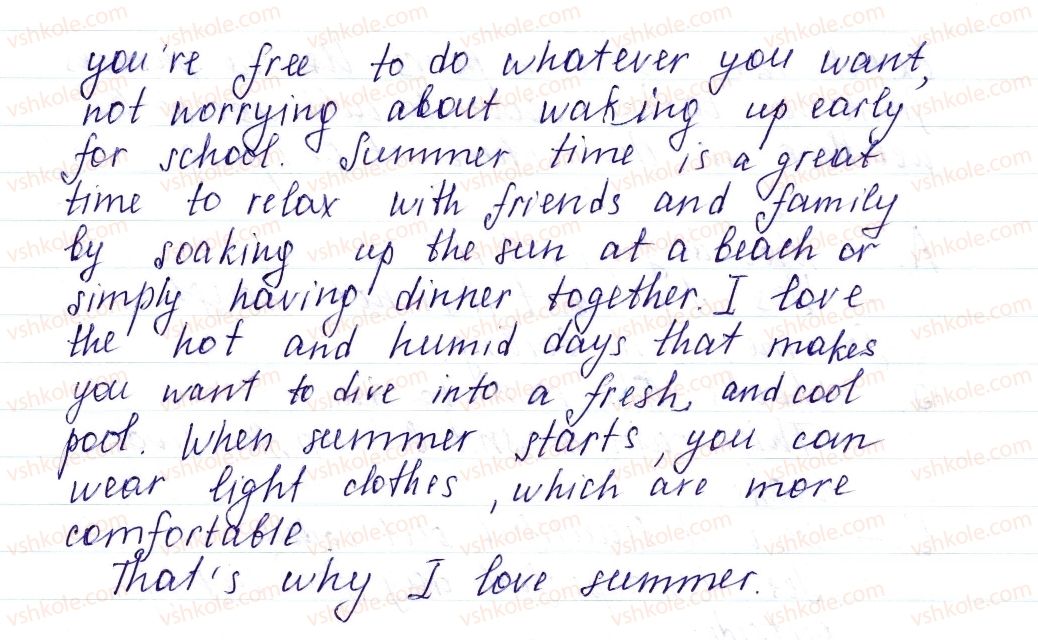 you're free to do whatever you want,
not worrying about waking up early
for school. Summer time is a great
time to relax with friends and family
by soaking up the sun at a beach or
simply having dinner together. I love
the hot and humid days that makes
you want to dive into a fresh, and cool
pool. When summer starts, you can
wear light clothes, which are more
comfortable
That's why I love summer.